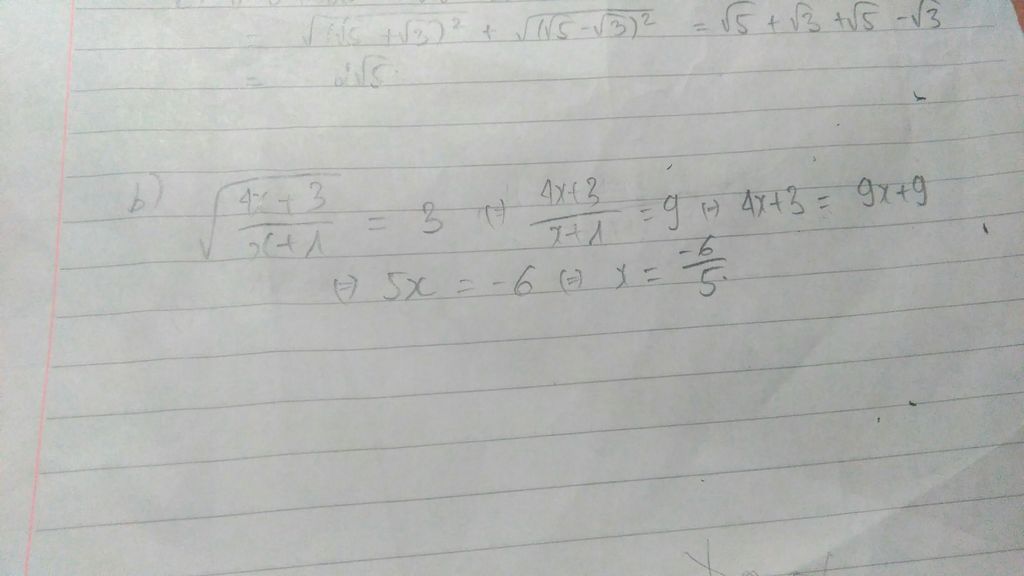 = √(√5 + √3)² + √(√5 - √3)² = √5 + √3 + √5 - √3
= 2√5.
b) √((4x + 3)/(x + 1)) = 3 ⇔ (4x+3)/(x+1) = 9 ⇔ 4x+3 = 9x+9
⇔ 5x = -6 ⇔ x = -6/5.